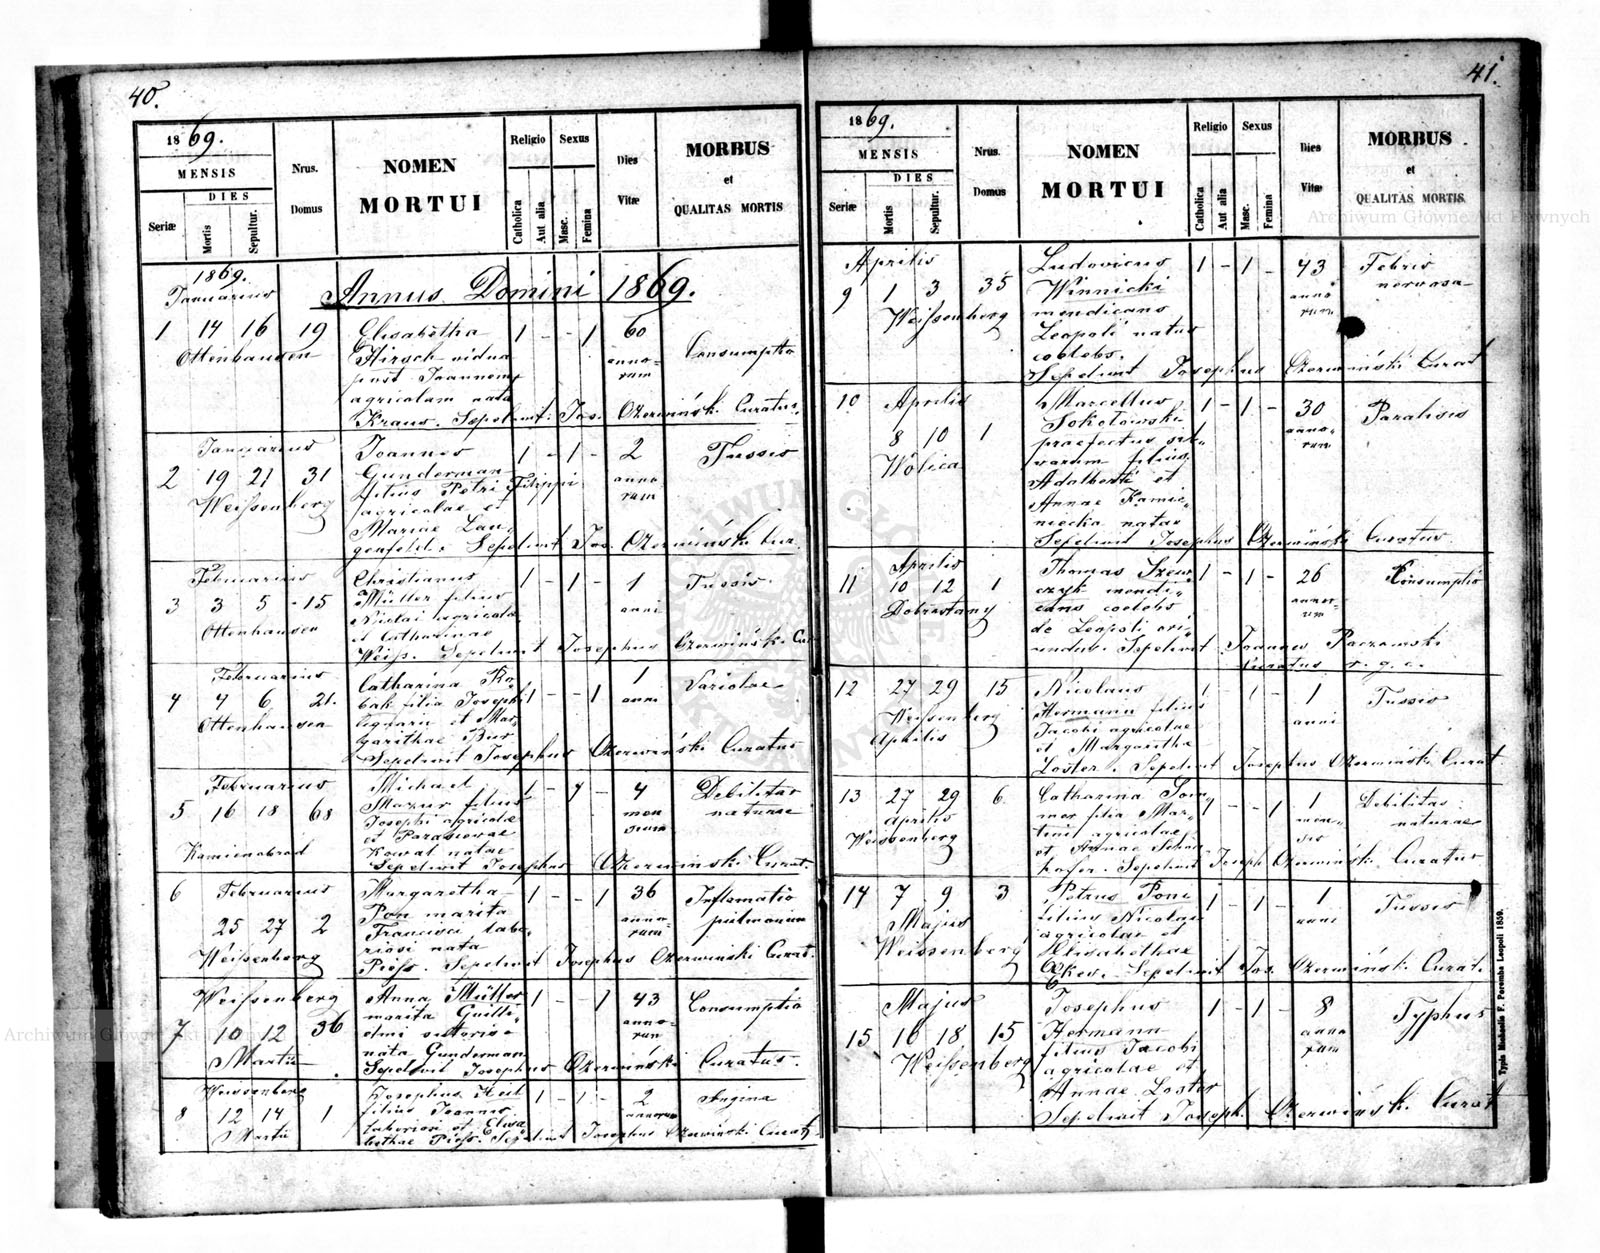 40.
1869.
MENSIS
DIES
Seriæ
Mortis
Sepultur.
Nrus.
Domus
NOMEN
MORTUI
Religio
Catholica
Aut alia
Sexus
Masc.
Femina
Dies
Vitæ
MORBUS
et
QUALITAS MORTIS
1869.
Januarius
Annus Domini 1869.
1 14 16 19
Ottenhausen
Elisabetha
Hirsch vidua
post Joannem
agricolam nata
Kraus. Sepelivit: Jos. Czerwiński Curatus.
1 - - 1
60
anno-
rum
Consumptio
Januarius
2 19 21 31
Weißenberg
Joannes
Gunderman
filius Petri Filippi
agricolae et
Mariae Lan-
genfeld. Sepelivit Jos. Czerwiński Cur.
1 - 1 -
2
anno
rum
Tussis
Februarius
3 3 5 - 15
Ottenhausen
Christianus
Müller filius
Nicolai agricolae
et Catharinae
Weiß. Sepelivit Josephus Czerwiński Cur
1 - 1 -
1
anni
Tussis.
Februarius
4 4 6 21.
Ottenhausen
Catharina
filia Josephi
et Mar-
garithae
Sepelivit Josephus Czerwiński Curatus
1 - - 1
1
anni
Variolae
Februarius
5 16 18 68
Kamienobrod
Michael
Mazur filius
Josephi agricolae
et Parascevae
Kowal natae
Sepelivit Josephus Czerwiński Curat.
1 - 1 -
4
men
sium
Debilitas
naturae
6 Februarius
25 27 2
Weißenberg
Margaretha
Pon marita
Francisci labo-
riosi nata
Piroß. Sepelivit Josephus Czerwiński Curat.
1 - - 1
36
anno-
rum
Inflamatio
pulmonum
Weißenberg
7 10 12 36
Martii
Anna Müller
marita Guill-
elmi sutoris
nata Gunderman
Sepelivit Josephus Czerwiński Curatus.
1 - - 1
43
anno-
rum
Consumptio
Weissenberg
8 12 14 1
Martii
Josephus Keil
filius Joannis
laboriosi et Elisa-
bethae Piroß. Sepelivit Josephus Czerwiński Curat.
1 - 1 -
2
annorum
Angina
41.
1869.
MENSIS
DIES
Seriæ
Mortis
Sepultur.
Nrus.
Domus
NOMEN
MORTUI
Religio
Catholica
Aut alia
Sexus
Masc.
Femina
Dies
Vitæ
MORBUS
et
QUALITAS MORTIS
Aprilis
9 1 3 35
Weißenberg
Ludovicus
Winnicki
mendicans
Leopoli natus
coelebs.
Sepelivit Josephus Czerwiński Curat
1 - 1 -
43
anno
rum
Febris
nervosa
10 Aprilis
8 10 1
Wolica
Marcellus
Sokołowski
praefectus sil-
varum filius
Adalberti et
Annae Kamie-
niecka natae
Sepelivit Josephus Czerwiński Curatus.
1 - 1 -
30
anno-
rum
Paralisis
Aprilis
11 10 12 1
Dobrostany
Thomas Szew-
czyk mendi-
cans coelebs
de Leopoli ori-
undus. Sepelivit Joannes Paczowski
Curatus r. g. c.
1 - 1 -
26
anno-
rum
Consumptio
12 27 29 15
Weissenberg
Aprilis
Nicolaus
Hermann filius
Jacobi agricolae
et Margarethae
Loster. Sepelivit Josephus Czerwiński Curat
1 1 -
1
anni
Tussis
13 27 29 6.
Aprilis
Weissenberg
Catharina
filia Mar-
tini agricolae
et Annae
Sepelivit Joseph Czerwiński Curatus
- - 1
1
men-
sis
Debilitas
naturae
14 7 9 3
Majus
Weissenberg
Petrus Poni
filius Nicolai
agricolae et
Elisabethae
Sepelivit Jos. Czerwiński Curat.
1 - 1 -
1
anni
Tussis
Majus
15 16 18 15
Weißenberg
Josephus
Hermann
filius Jacobi
agricolae et
Annae Loster
Sepelivit Joseph. Czerwiński Curat
1 - 1 -
8
anno
rum
Typhus
Archiwum Główne Akt Dawnych
Archiwum Główne Akt Dawnych
ARCHIWUM GŁÓWNE AKT DAWNYCH